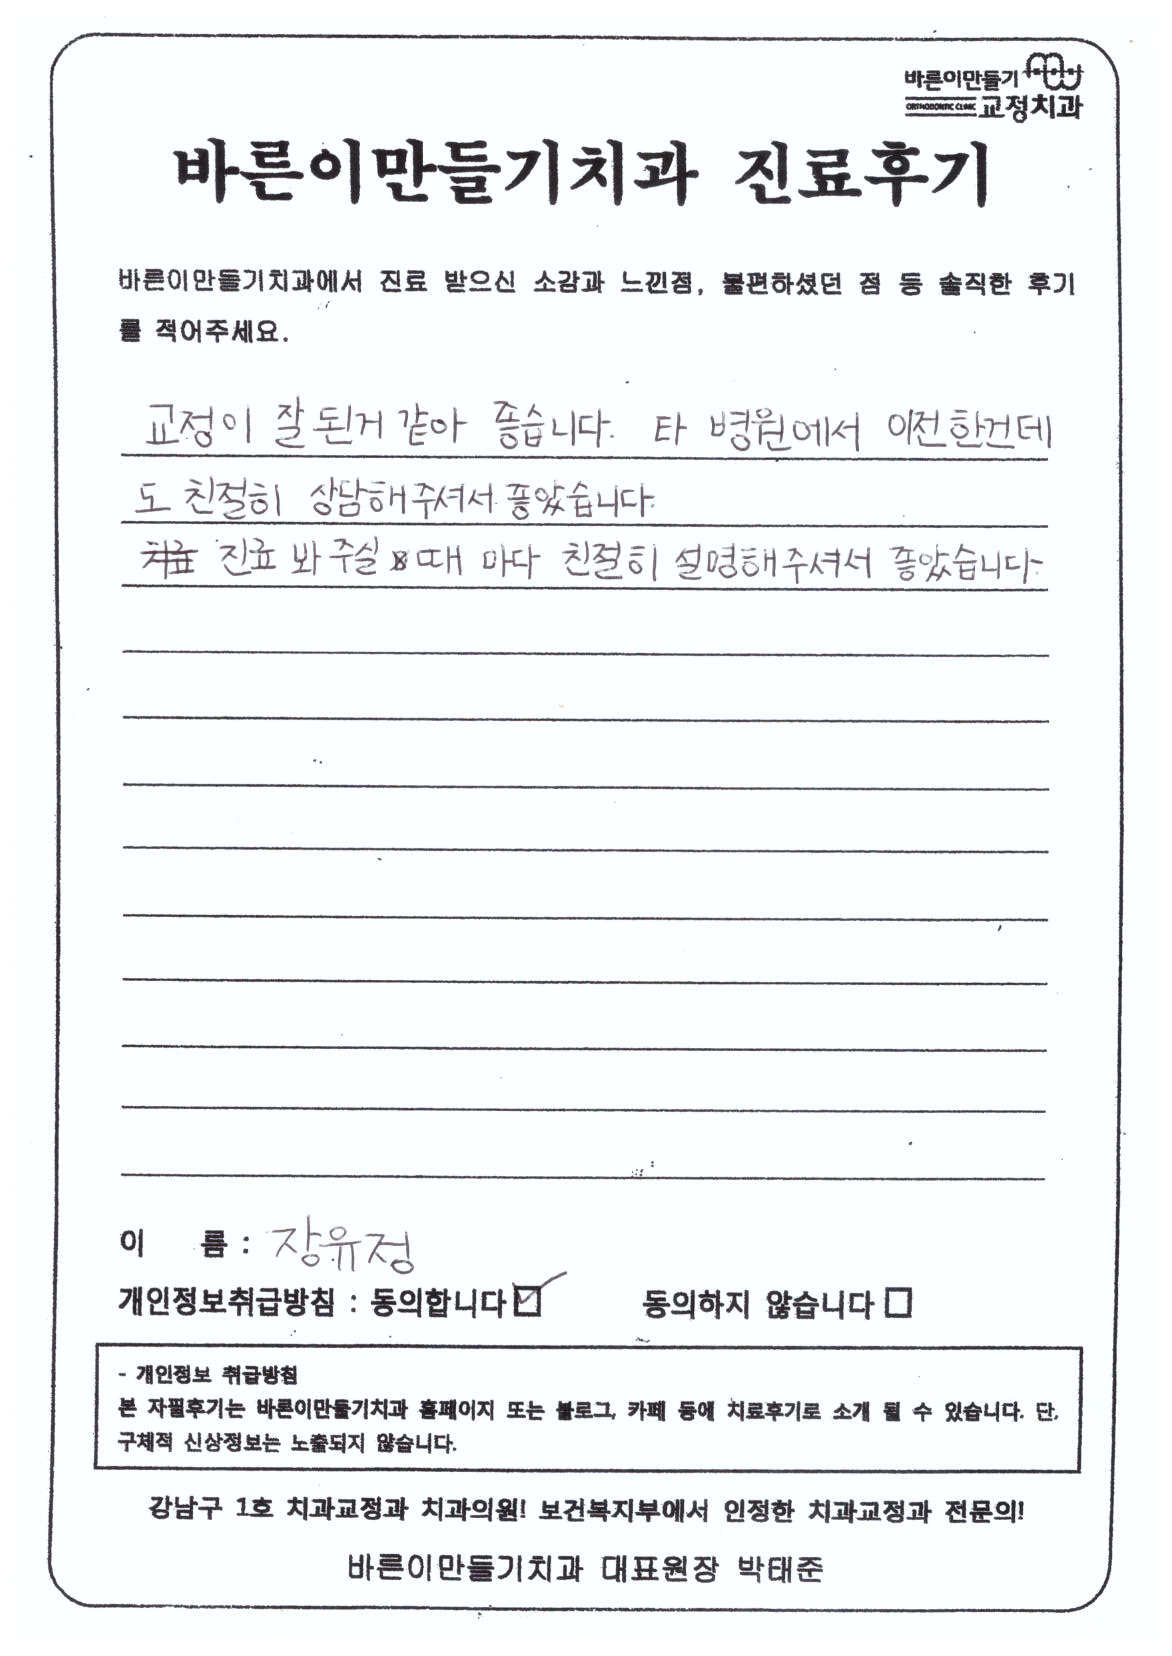 바른이만들기
ORTHODONTIC CLINIC 교정치과
바른이만들기치과 진료후기
바른이만들기치과에서 진료 받으신 소감과 느낀점, 불편하셨던 점 등 솔직한 후기
를 적어주세요.
교정이 잘 된거 같아 좋습니다. 타 병원에서 이전한건데
도 친절히 상담해주셔서 좋았습니다.
진료 봐 주실 때 마다 친절히 설명해주셔서 좋았습니다.
이 름 : 장유정
개인정보취급방침 : 동의합니다 동의하지 않습니다
- 개인정보 취급방침
본 자필후기는 바른이만들기치과 홈페이지 또는 블로그, 카페 등에 치료후기로 소개 될 수 있습니다. 단,
구체적 신상정보는 노출되지 않습니다.
강남구 1호 치과교정과 치과의원! 보건복지부에서 인정한 치과교정과 전문의!
바른이만들기치과 대표원장 박태준